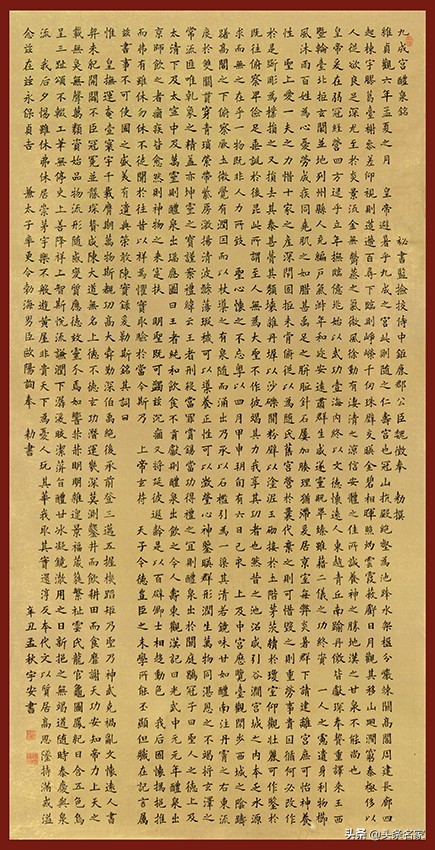 九成宮醴泉銘
秘書監撿挍侍中鉅鹿郡公臣魏徵奉 勑撰
維貞觀六年孟夏之月 皇帝避暑乎九成之宮此則隨之仁壽宮也冠山抗殿絕壑為池跨水架楹分巖竦闕高閣周建長廊四
起棟宇膠葛臺榭參差仰視則迢遰百尋下臨則崢嶸千仞珠璧交暎金碧相暉照灼雲霞蔽虧日月觀其移山迴澗窮泰極侈以
人從欲良足深尤至於炎景流金無鬱蒸之氣微風徐動有淒清之涼信安體之佳所誠養神之勝地漢之甘泉不能尚也
皇帝爰在弱冠經營四方逮乎立年撫臨億兆始以武功壹海內終以文德懷遠人東越青丘南踰丹徼皆獻琛奉贄重譯來王西
暨輪臺北拒玄闕並地列州縣人充編戶氣淑年和邇安遠肅群生咸遂靈貺畢臻雖藉二儀之功終資 一人之慮遺身利物櫛
風沐雨百姓為心憂勞成疾同堯肌之如腊甚禹足之胼胝針石屢加腠理猶滯爰居京室每弊炎暑群下請建離宮庶可怡神養
性 聖上愛一夫之力惜十家之產深閉固拒未肯俯從以為隨氏舊宮營於曩代棄之則可惜毀之則重勞事貴因循何必改作
於是斲彫為樸損之又損去其泰甚葺其頹壞雜丹墀以沙礫間粉壁以塗泥玉砌接於土階茅茨續於瓊室仰觀壯麗可作鑒於
既往俯察卑儉足垂訓於後昆此所謂至人無為大聖不作彼竭其力我享其功者也然昔之池沼咸引谷澗宮城之內本乏水源
求而無之在乎一物既非人力所致 聖心懷之不忘粵以四月甲申朔旬有六日己亥 上及中宮歷覽臺觀閑步西城之陰躊
躇高閣之下俯察厥土微覺有潤因而以杖導之有泉隨而涌出乃承以石檻引為一渠其清若鏡味甘如醴南注丹霄之右東流
度於雙闕貫穿青瑣縈帶紫房激揚清波滌蕩瑕穢可以導養正性可以澂瑩心神鑒暎群形潤生萬物同湛恩之不竭將玄澤之
常流匪唯乾象之精蓋亦坤靈之寶謹案禮緯云王者刑殺當罪賞錫當功得禮之宜則醴泉出於闕庭鶡冠子曰聖人之德上及
太清下及太寧中及萬靈則醴泉出瑞應圖曰王者純和飲食不貢獻則醴泉出飲之令人壽東觀漢記曰光武中元元年醴泉出
京師飲之者痼疾皆愈然則神物之來寔扶 明聖既可蠲茲沉痼又將延彼遐齡是以百辟卿士相趨動色 我后固懷撝挹推
而弗有雖休勿休不徒聞於往昔以祥為懼實取驗於當今斯乃 上帝玄符 天子令德豈臣之末學所能丕顯但職在記言屬
茲書事不可使國之盛美有遺典策敢陳實錄爰勒斯銘其詞曰
惟皇撫運奄壹寰宇千載膺期萬物斯覩功高大舜勤深伯禹絕後承前登三邁五握機蹈矩乃聖乃神武克禍亂文懷遠人書
契未紀開闢不臣冠冕並襲琛贄咸陳大道無名上德不德玄功潛運幾深莫測鑿井而飲耕田而食靡謝天功安知帝力上天之
載無臭無聲萬類資始品物流形隨感變質應德效靈介焉如響赫赫明明雜遝景福葳蕤繁祉雲氏龍官龜圖鳳紀日含五色烏
呈三趾頌不輟工筆無停史上善降祥上智斯悅流謙潤下潺湲皎潔蓱旨醴甘冰凝鏡澈用之日新挹之無竭道隨時泰慶與泉
流我后夕惕雖休弗休居崇茅宇樂不般遊黃屋非貴天下為憂人玩其華我取其實還淳反本代文以質居高思墜持滿戒溢
念茲在茲永保貞吉 兼太子率更令勃海男臣歐陽詢奉 勑書
辛丑孟秋宇安書
头条@头条名家